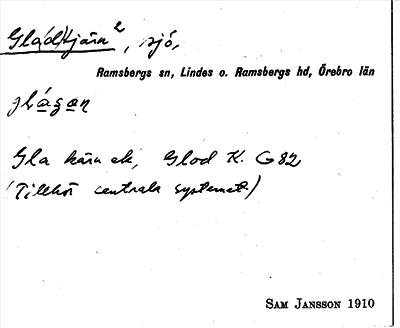 Gla(d)tjärn², sjö,
Ramsbergs sn, Lindes o. Ramsbergs hd, Örebro län
Gla kärn ek, Glod K. G 82
(Tillhör centrala systemet)
SAM JANSSON 1910